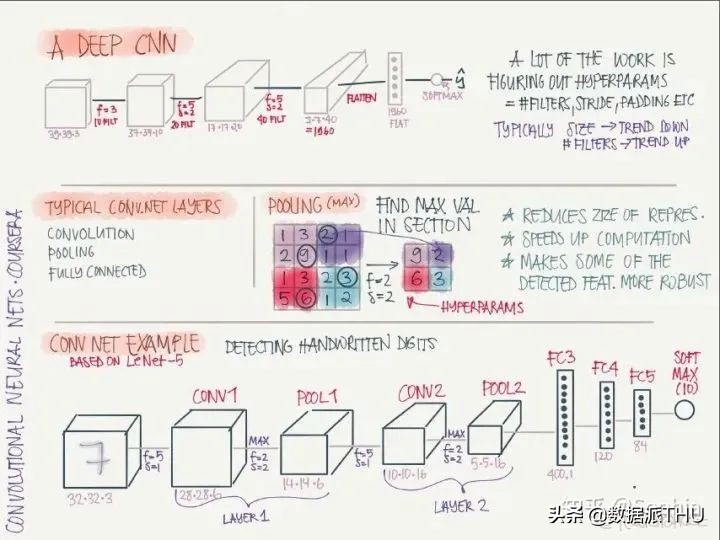 A DEEP CNN
39·39·3
f=3
10 FILT
37·37·10
f=5
s=2
20 FILT
17·17·20
f=5
s=2
40 FILT
7·7·40
=1960
FLATTEN
1960
FLAT
SOFTMAX
ŷ
A LOT OF THE WORK IS
FIGURING OUT HYPERPARAMS
= #FILTERS, STRIDE, PADDING ETC
TYPICALLY SIZE → TREND DOWN
#FILTERS → TREND UP
TYPICAL CONV.NET LAYERS
CONVOLUTION
POOLING
FULLY CONNECTED
POOLING (MAX)
1 3 2 1
2 9 1 1
1 3 2 3
5 6 1 2
FIND MAX VAL
IN SECTION
f=2
s=2
9 2
6 3
HYPERPARAMS
★ REDUCES SIZE OF REPRES.
★ SPEEDS UP COMPUTATION
★ MAKES SOME OF THE
DETECTED FEAT. MORE ROBUST
CONV NET EXAMPLE
BASED ON LeNet-5
DETECTING HANDWRITTEN DIGITS
7
32·32·3
f=5
s=1
CONV1
28·28·6
MAX
f=2
s=2
POOL1
14·14·6
LAYER 1
f=5
s=1
CONV2
10·10·16
MAX
f=2
s=2
POOL2
5·5·16
LAYER 2
FC3
400,1
FC4
120
FC5
84
SOFT
MAX
(10)
CONVOLUTIONAL NEURAL NETS · COURSERA
头条 @数据派THU